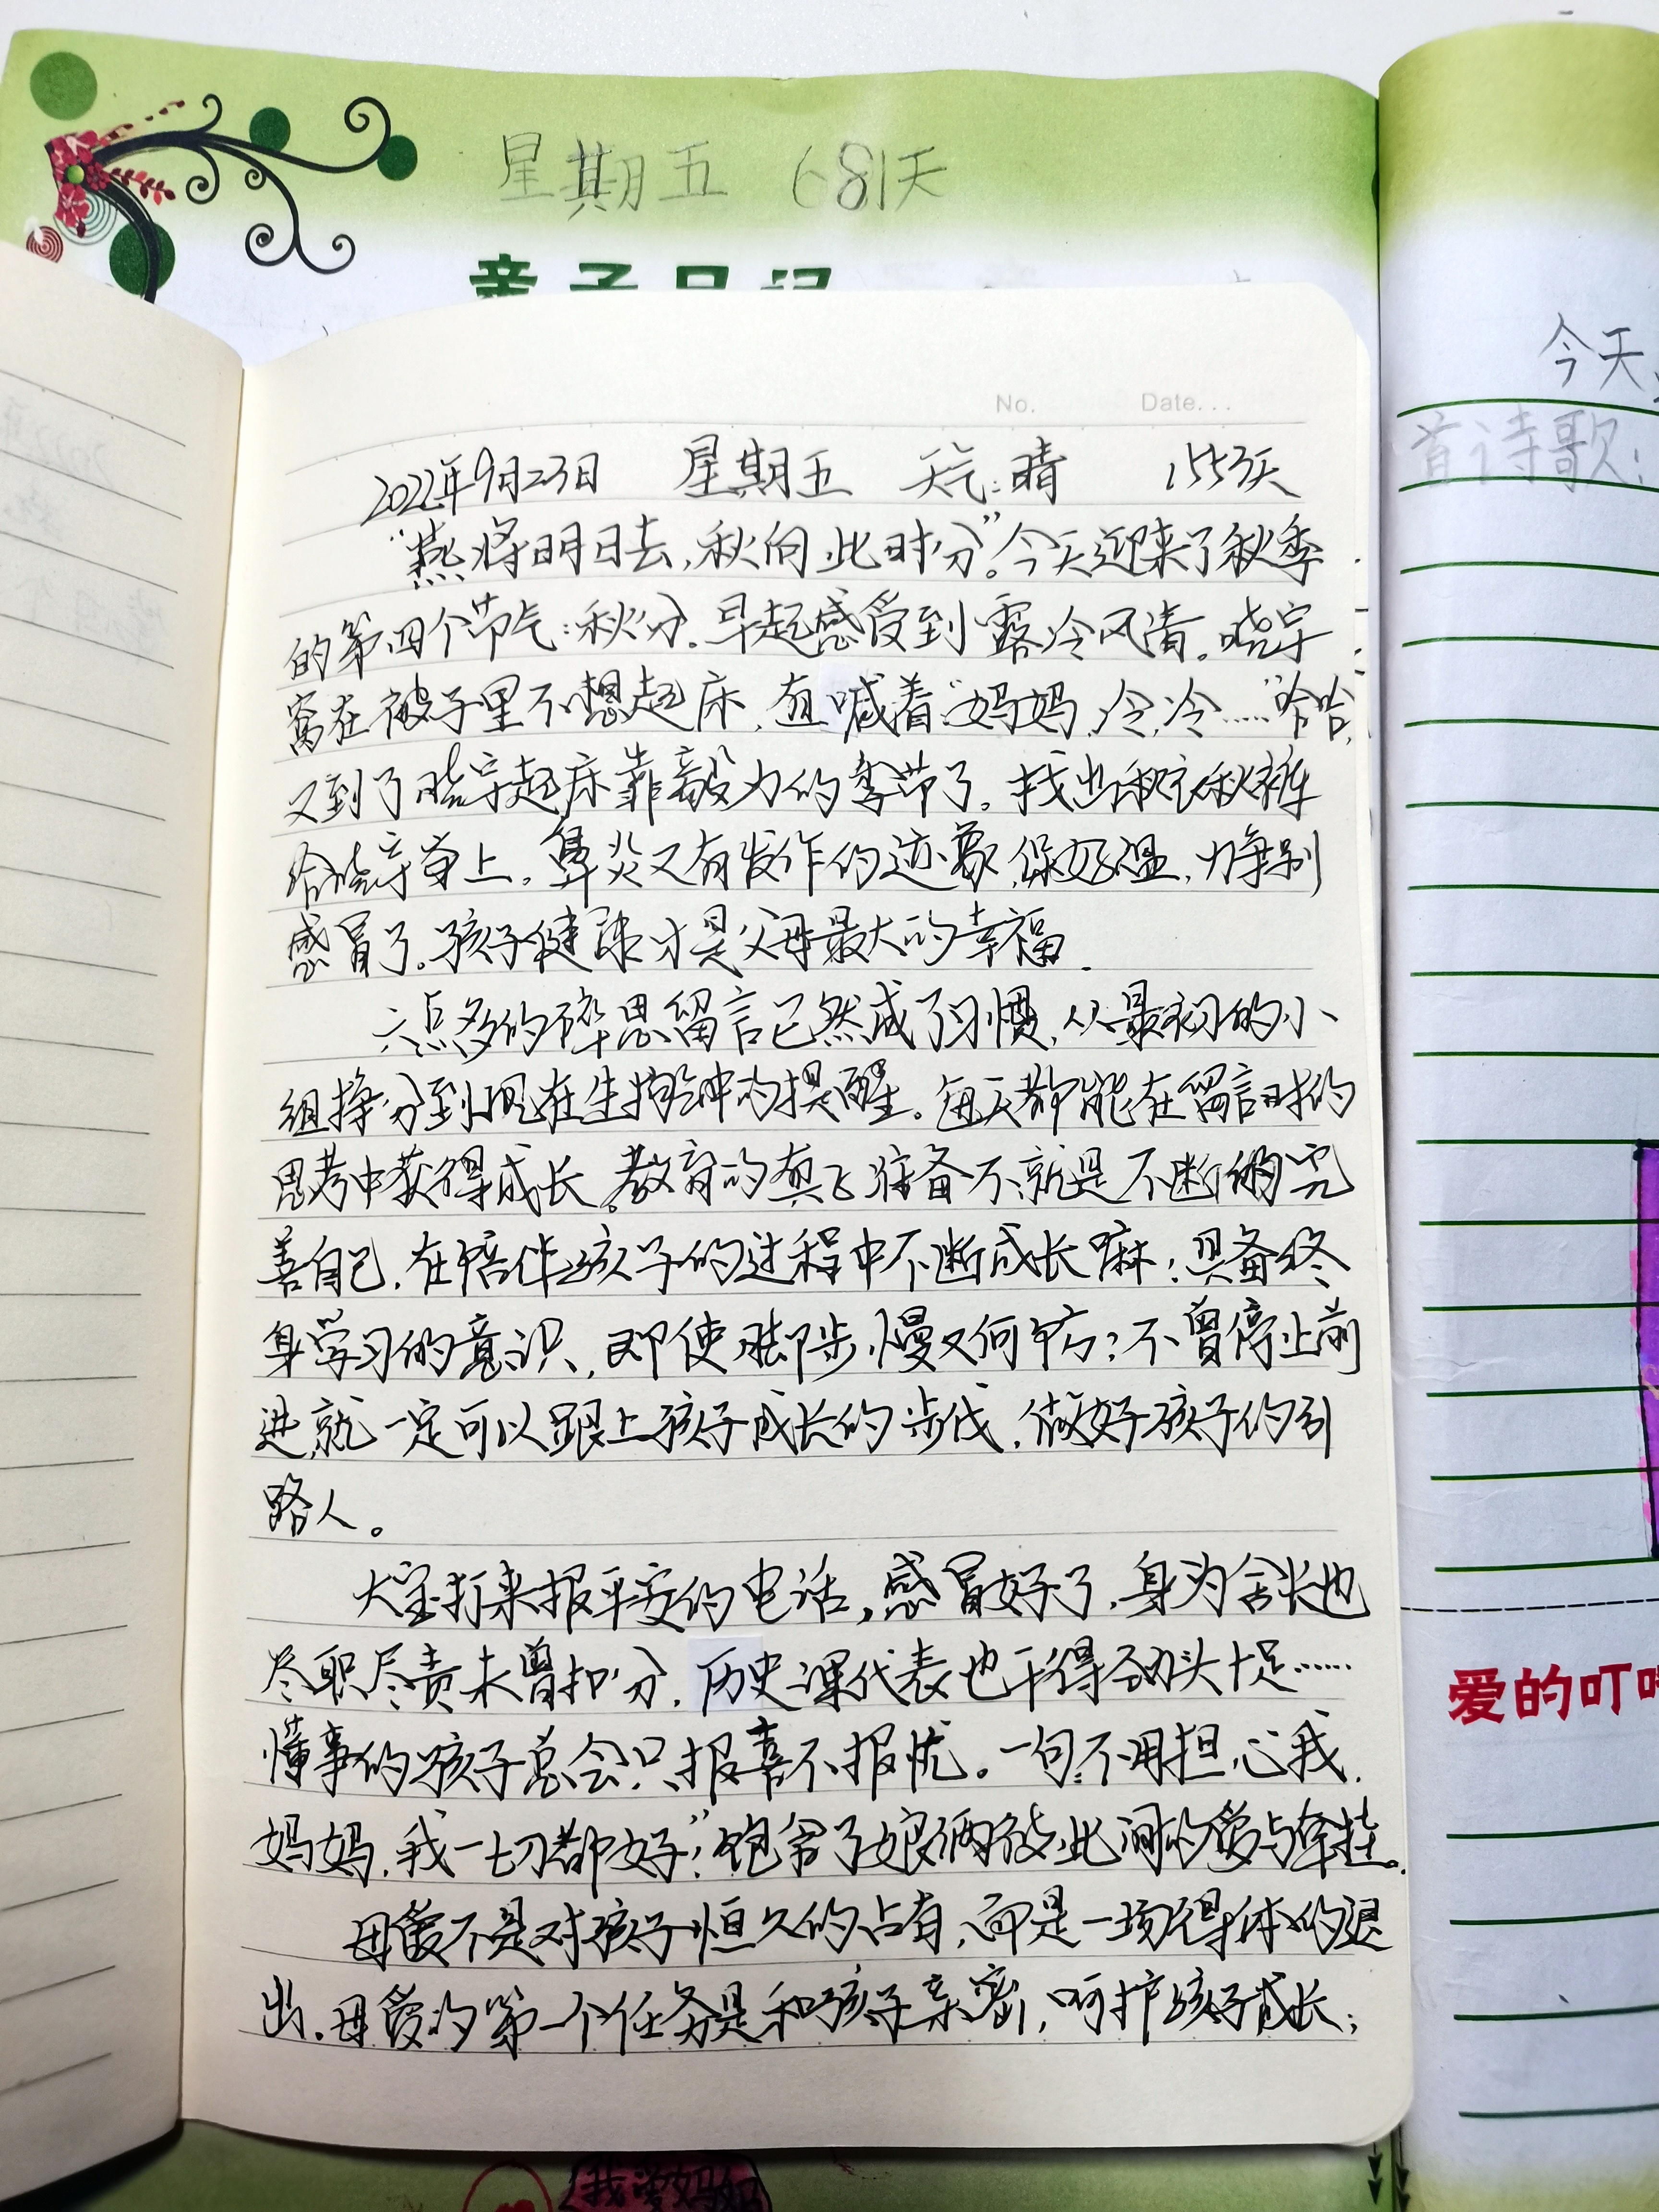 星期五 681天
亲子日记
No. Date...
2022年9月23日 星期五 天气:晴 1553天
“燕将明日去,秋向此时分”。今天迎来了秋季
的第四个节气:秋分。早起感受到露冷风清。晓宇
窝在被子里不想起床,直喊着“妈妈,冷,冷……”哈哈,
又到了晓宇起床靠毅力的季节了。找出秋衣秋裤
给晓宇穿上。鼻炎又有发作的迹象,保好温,力争别
感冒了。孩子健康才是父母最大的幸福.
六点多的碎思留言已然成了习惯,从最初的小
组挣分到现在生物钟的提醒。每天都能在留言时的
思考中获得成长。教育的真正准备不就是不断的完
善自己,在陪伴孩子的过程中不断成长嘛;具备终
身学习的意识,即使脚步慢又何妨?不曾停止前
进,就一定可以跟上孩子成长的步伐,做好孩子的引
路人。
大宝打来报平安的电话,感冒好了,身为舍长也
尽职尽责未曾扣分,历史课代表也干得劲头十足……
懂事的孩子总会只报喜不报忧。一句“不用担心我,
妈妈,我一切都好”,饱含了娘俩彼此间的爱与牵挂。
母爱不是对孩子恒久的占有,而是一场得体的退
出.母爱的第一个任务是和孩子亲密,呵护孩子成长;
今天
首诗歌:
爱的叮
我爱妈妈